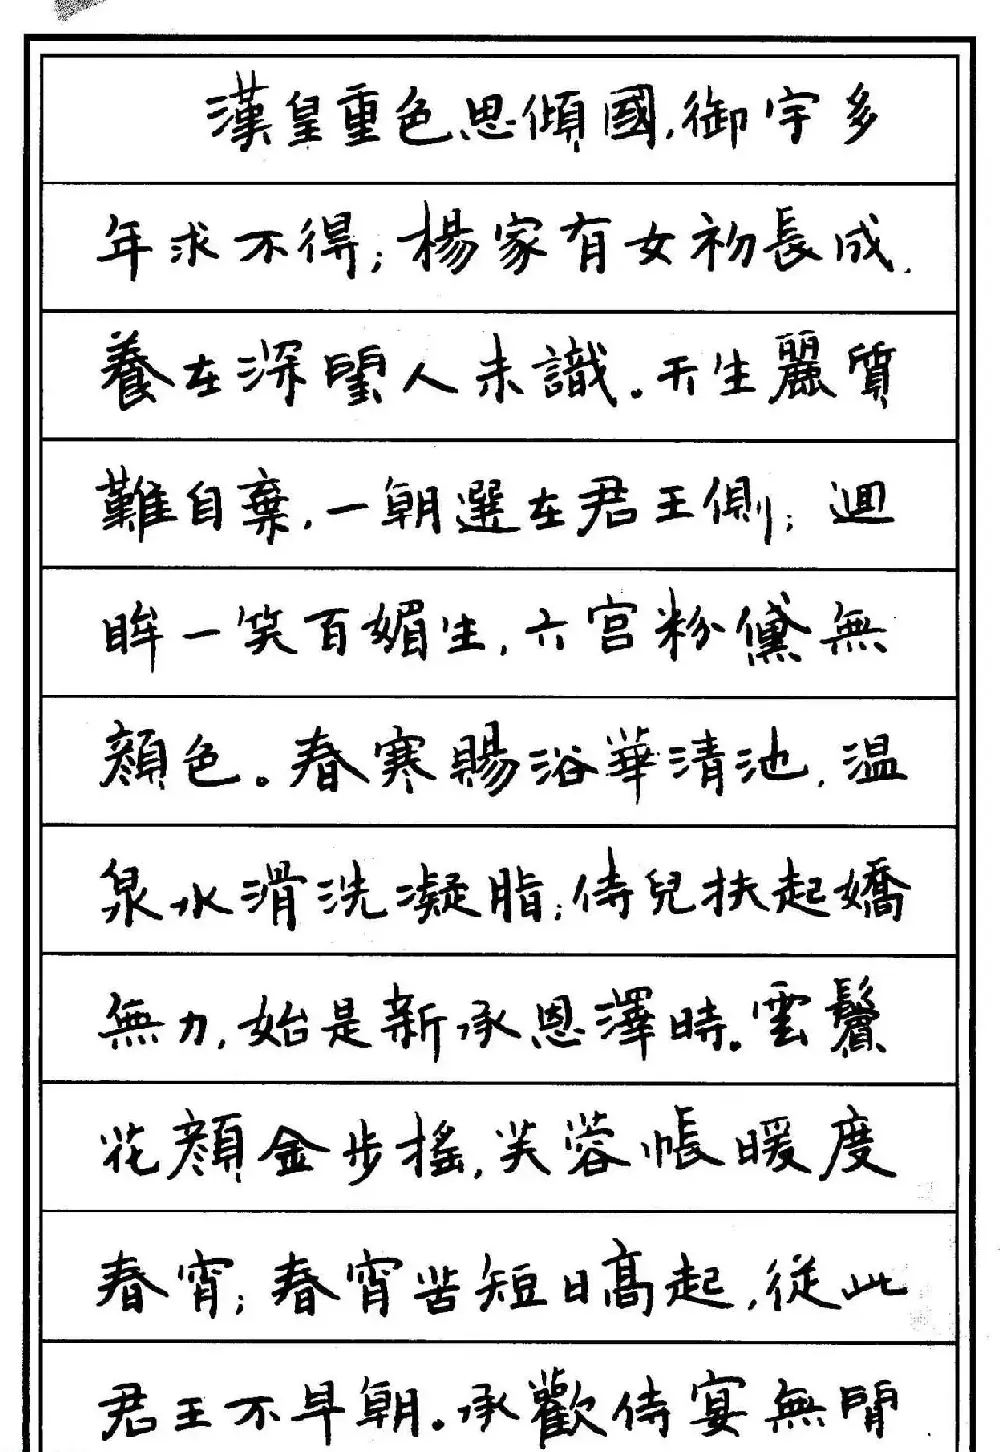 漢皇重色思傾國,御宇多
年求不得;楊家有女初長成,
養在深閨人未識。天生麗質
難自棄,一朝選在君王側;迴
眸一笑百媚生,六宮粉黛無
顏色。春寒賜浴華清池,溫
泉水滑洗凝脂;侍兒扶起嬌
無力,始是新承恩澤時。雲鬢
花顏金步搖,芙蓉帳暖度
春宵;春宵苦短日高起,從此
君王不早朝。承歡侍宴無閒